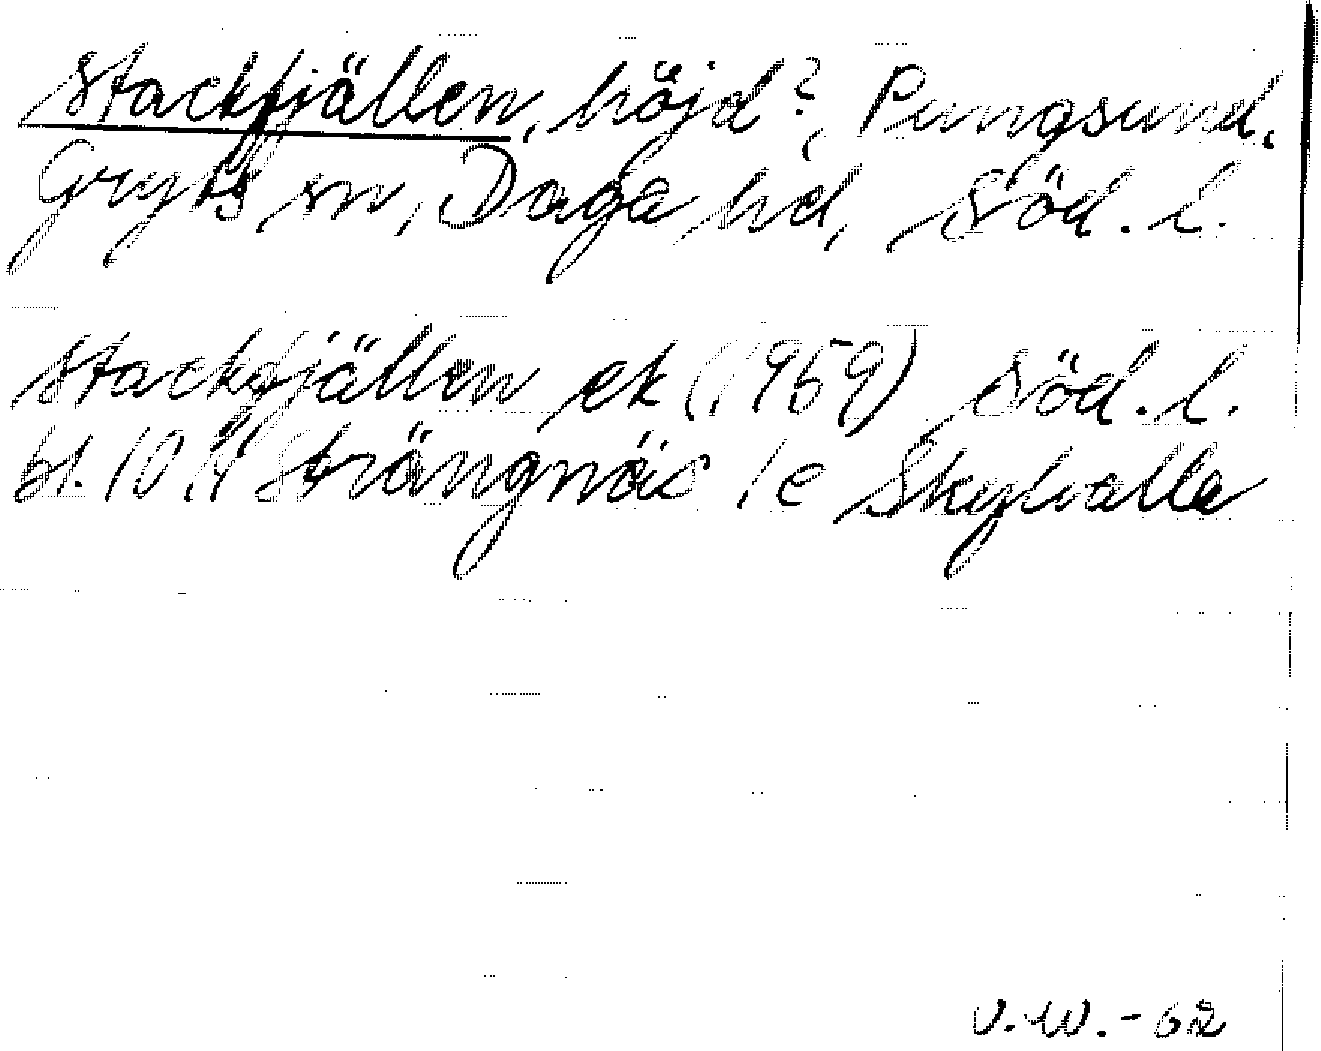 Stackfjällen, höjd?, Pungsund,
Gryts sn, Daga hd, Söd. l.
Stackfjällen ek (1959) Söd. l.
bl. 10 H Strängnäs 1e Skyhalla
V.W.-62